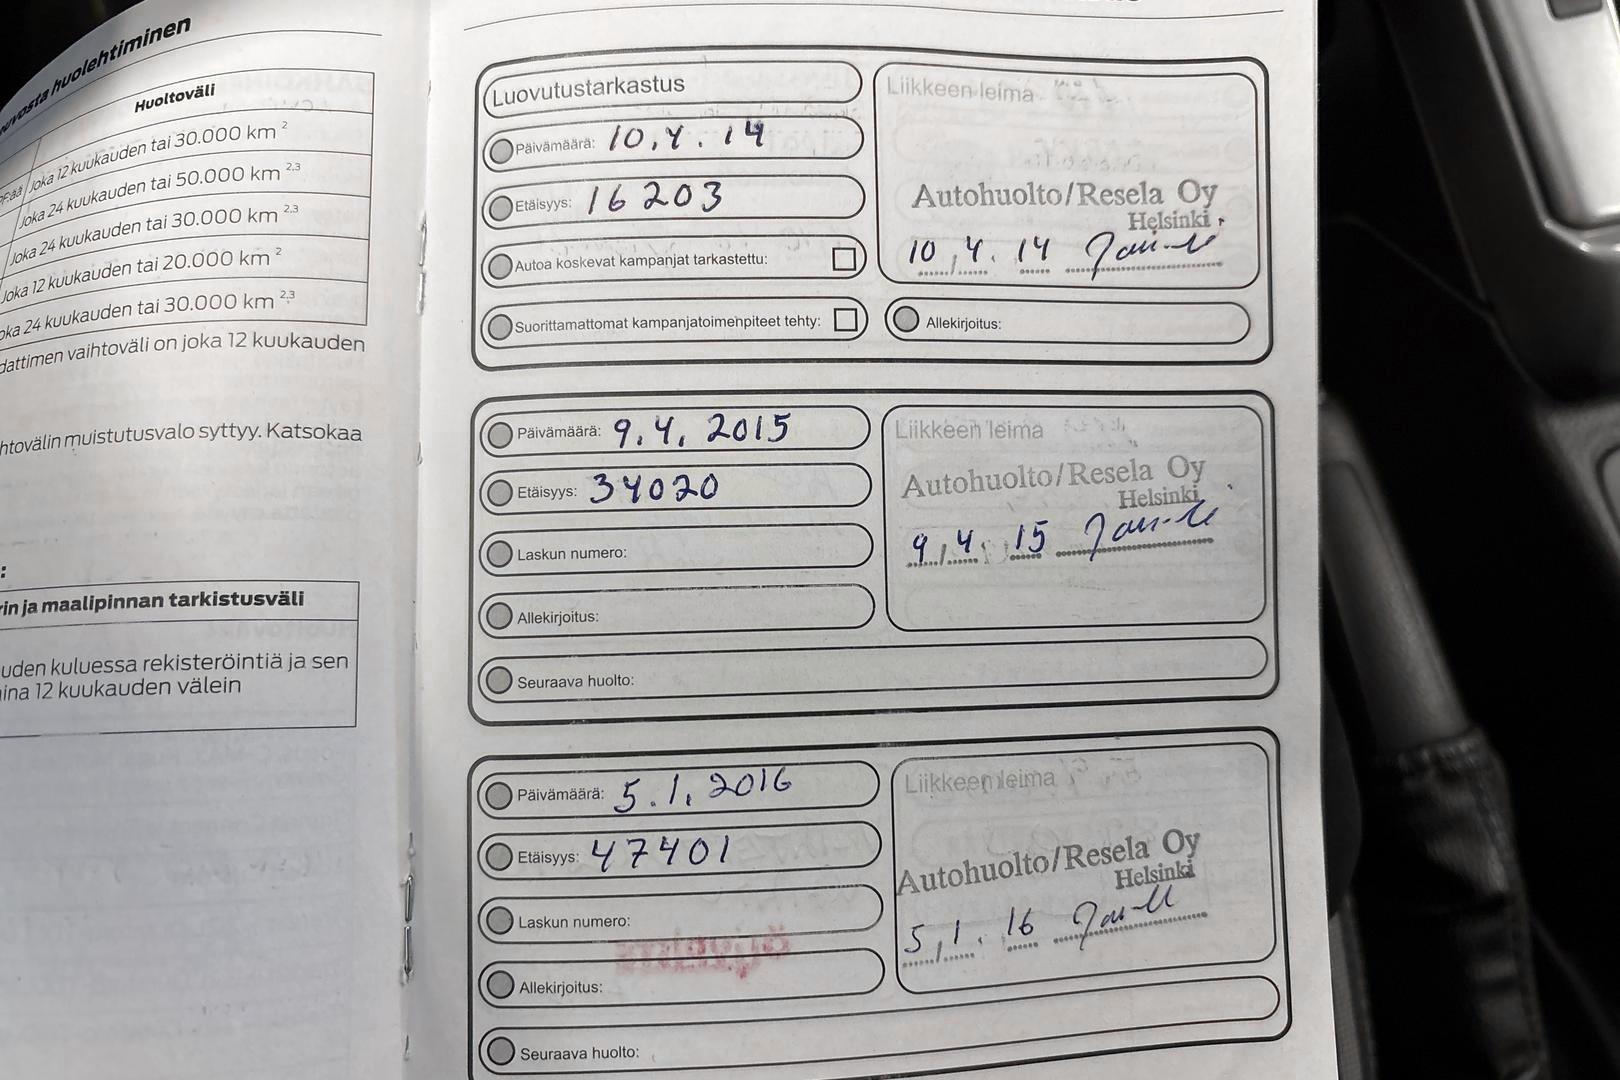 huolehtiminen
Huoltoväli
Joka 12 kuukauden tai 30.000 km 2
Joka 24 kuukauden tai 50.000 km 2,3
Joka 24 kuukauden tai 30.000 km 2,3
Joka 12 kuukauden tai 20.000 km 2
oka 24 kuukauden tai 30.000 km 2,3
dattimen vaihtoväli on joka 12 kuukauden
htovälin muistutusvalo syttyy. Katsokaa
:
rin ja maalipinnan tarkistusväli
uden kuluessa rekisteröintiä ja sen
ina 12 kuukauden välein
Luovutustarkastus
Päivämäärä: 10.4.14
Etäisyys: 16203
Autoa koskevat kampanjat tarkastettu:
Suorittamattomat kampanjatoimenpiteet tehty:
Liikkeen leima
Autohuolto/Resela Oy
Helsinki
10.4.14
Allekirjoitus:
Päivämäärä: 9.4.2015
Etäisyys: 34020
Laskun numero:
Allekirjoitus:
Seuraava huolto:
Liikkeen leima
Autohuolto/Resela Oy
Helsinki
9.4.15
Päivämäärä: 5.1.2016
Etäisyys: 47401
Laskun numero:
Allekirjoitus:
Seuraava huolto:
Liikkeen leima
Autohuolto/Resela Oy
Helsinki
5.1.16